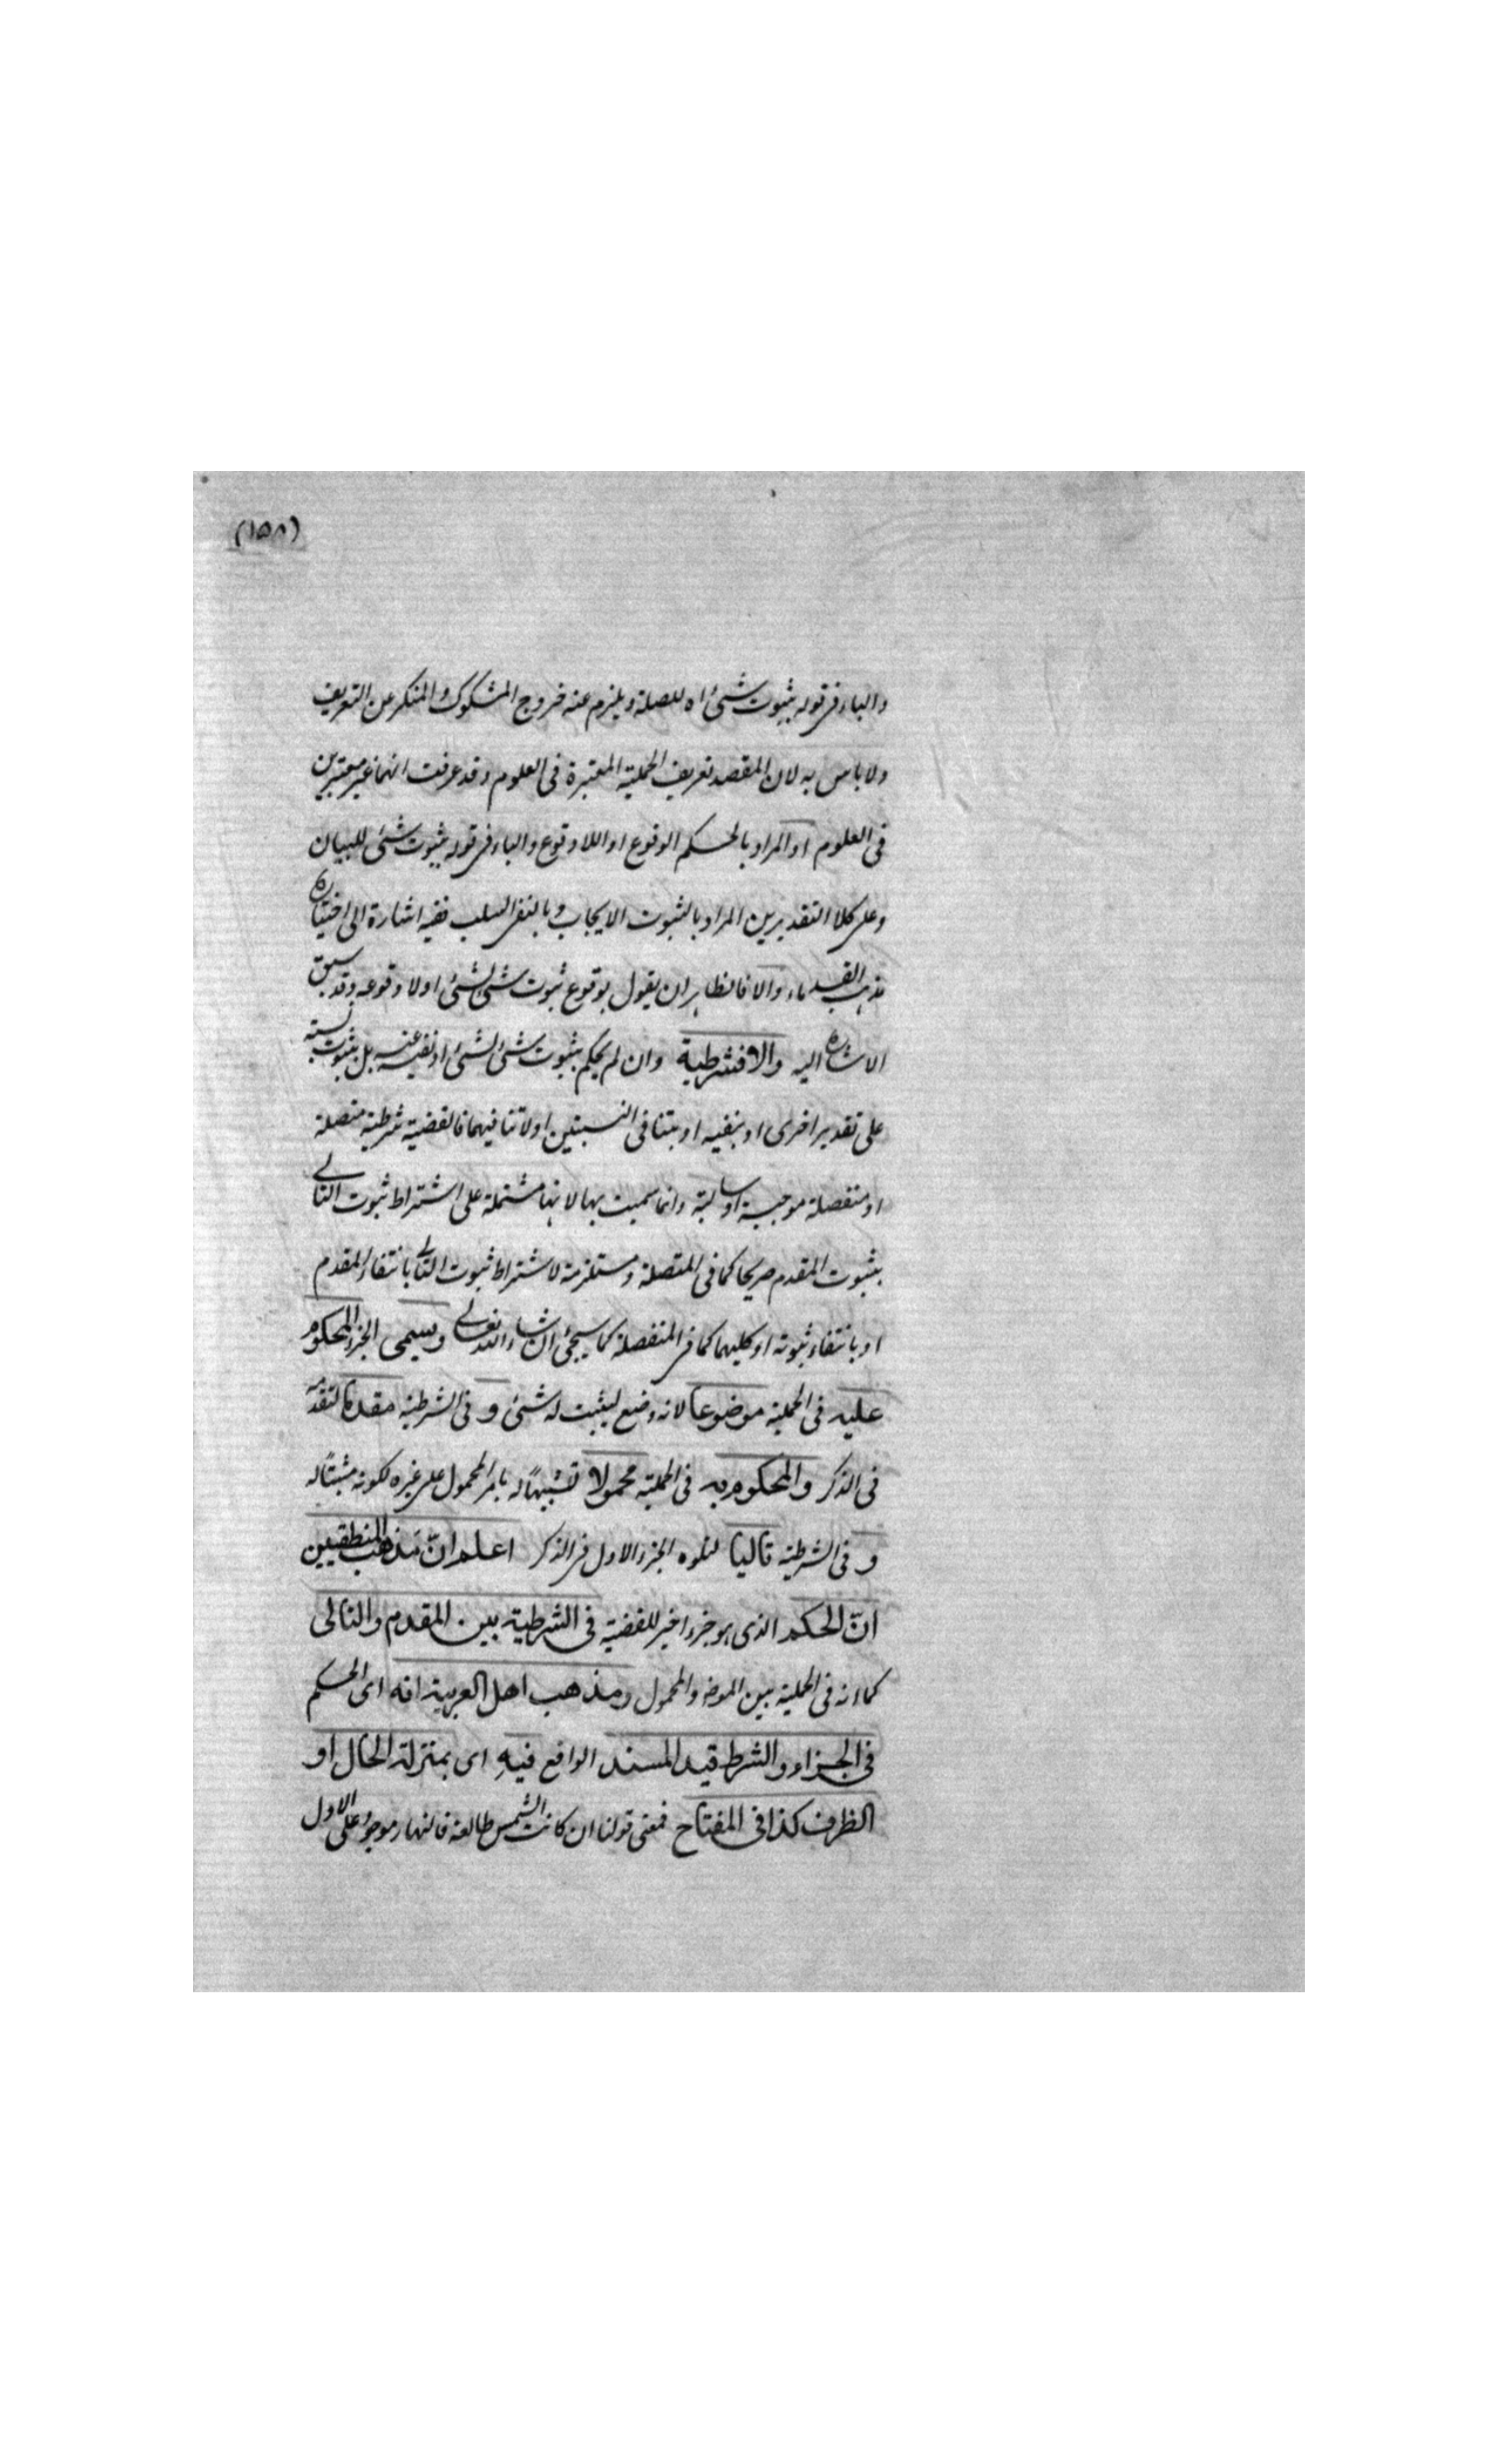 (١٥٨)
والباء فى قوله بثبوت شئ اه للصلة ويلزم عنه خروج المشكوك والمنكر عن التعريف
ولا باس به لان المقصد تعريف الحملية المعتبرة فى العلوم وقد عرفت انهما غير معتبرين
فى العلوم او المراد بالحكم الوقوع او اللا وقوع والباء فى قوله بثبوت شئ للبيان
وعلى كلا التقديرين المراد بالثبوت الايجاب وبالنفى السلب ففيه اشارة الى اختياره
مذهب القدماء والا فالظاهر ان يقول بوقوع ثبوت شئ لشئ اولا وقوعه وقد سبق
الاشارة اليه والا فشرطية وان لم يحكم بثبوت شئ لشئ او نفيه عنه بل بثبوت نسبة
على تقدير اخرى او بنفيه او بتنافى النسبتين اولا تنافيهما فالقضية شرطية متصلة
او منفصلة موجبة او سالبة وانما سميت بها لانها مشتملة على اشتراط ثبوت التالى
بثبوت المقدم صريحا كما فى المتصلة ومستلزمة لاشتراط ثبوت التالى بانتفاء المقدم
او بانتفاء ثبوته او كليهما كما فى المنفصلة كما سيجئ ان شاء الله تعالى ويسمى الجزء المحكوم
عليه فى الحملية موضوعا لانه وضع ليثبت له شئ و فى الشرطية مقدما لتقدمه
فى الذكر والمحكوم به فى الحملية محمولا تشبيهًا له بامر المحمول على غيره لكونه مثبتًا له
و فى الشرطية تاليا لتلوه الجزء الاول فى الذكر اعلم انّ مذهب المنطقيين
انّ الحكم الذى هو جزء اخير للقضية فى الشرطية بين المقدم والتالى
كما انه فى الحملية بين الموضو والمحمول ومذهب اهل العربية انه اى الحكم
فى الجزاء والشرط قيد المسند الواقع فيهِ اى بمنزلة الحال او
الظرف كذا فى المفتاح فمعنى قولنا ان كانت الشمس طالعة فالنهار موجود على الاول